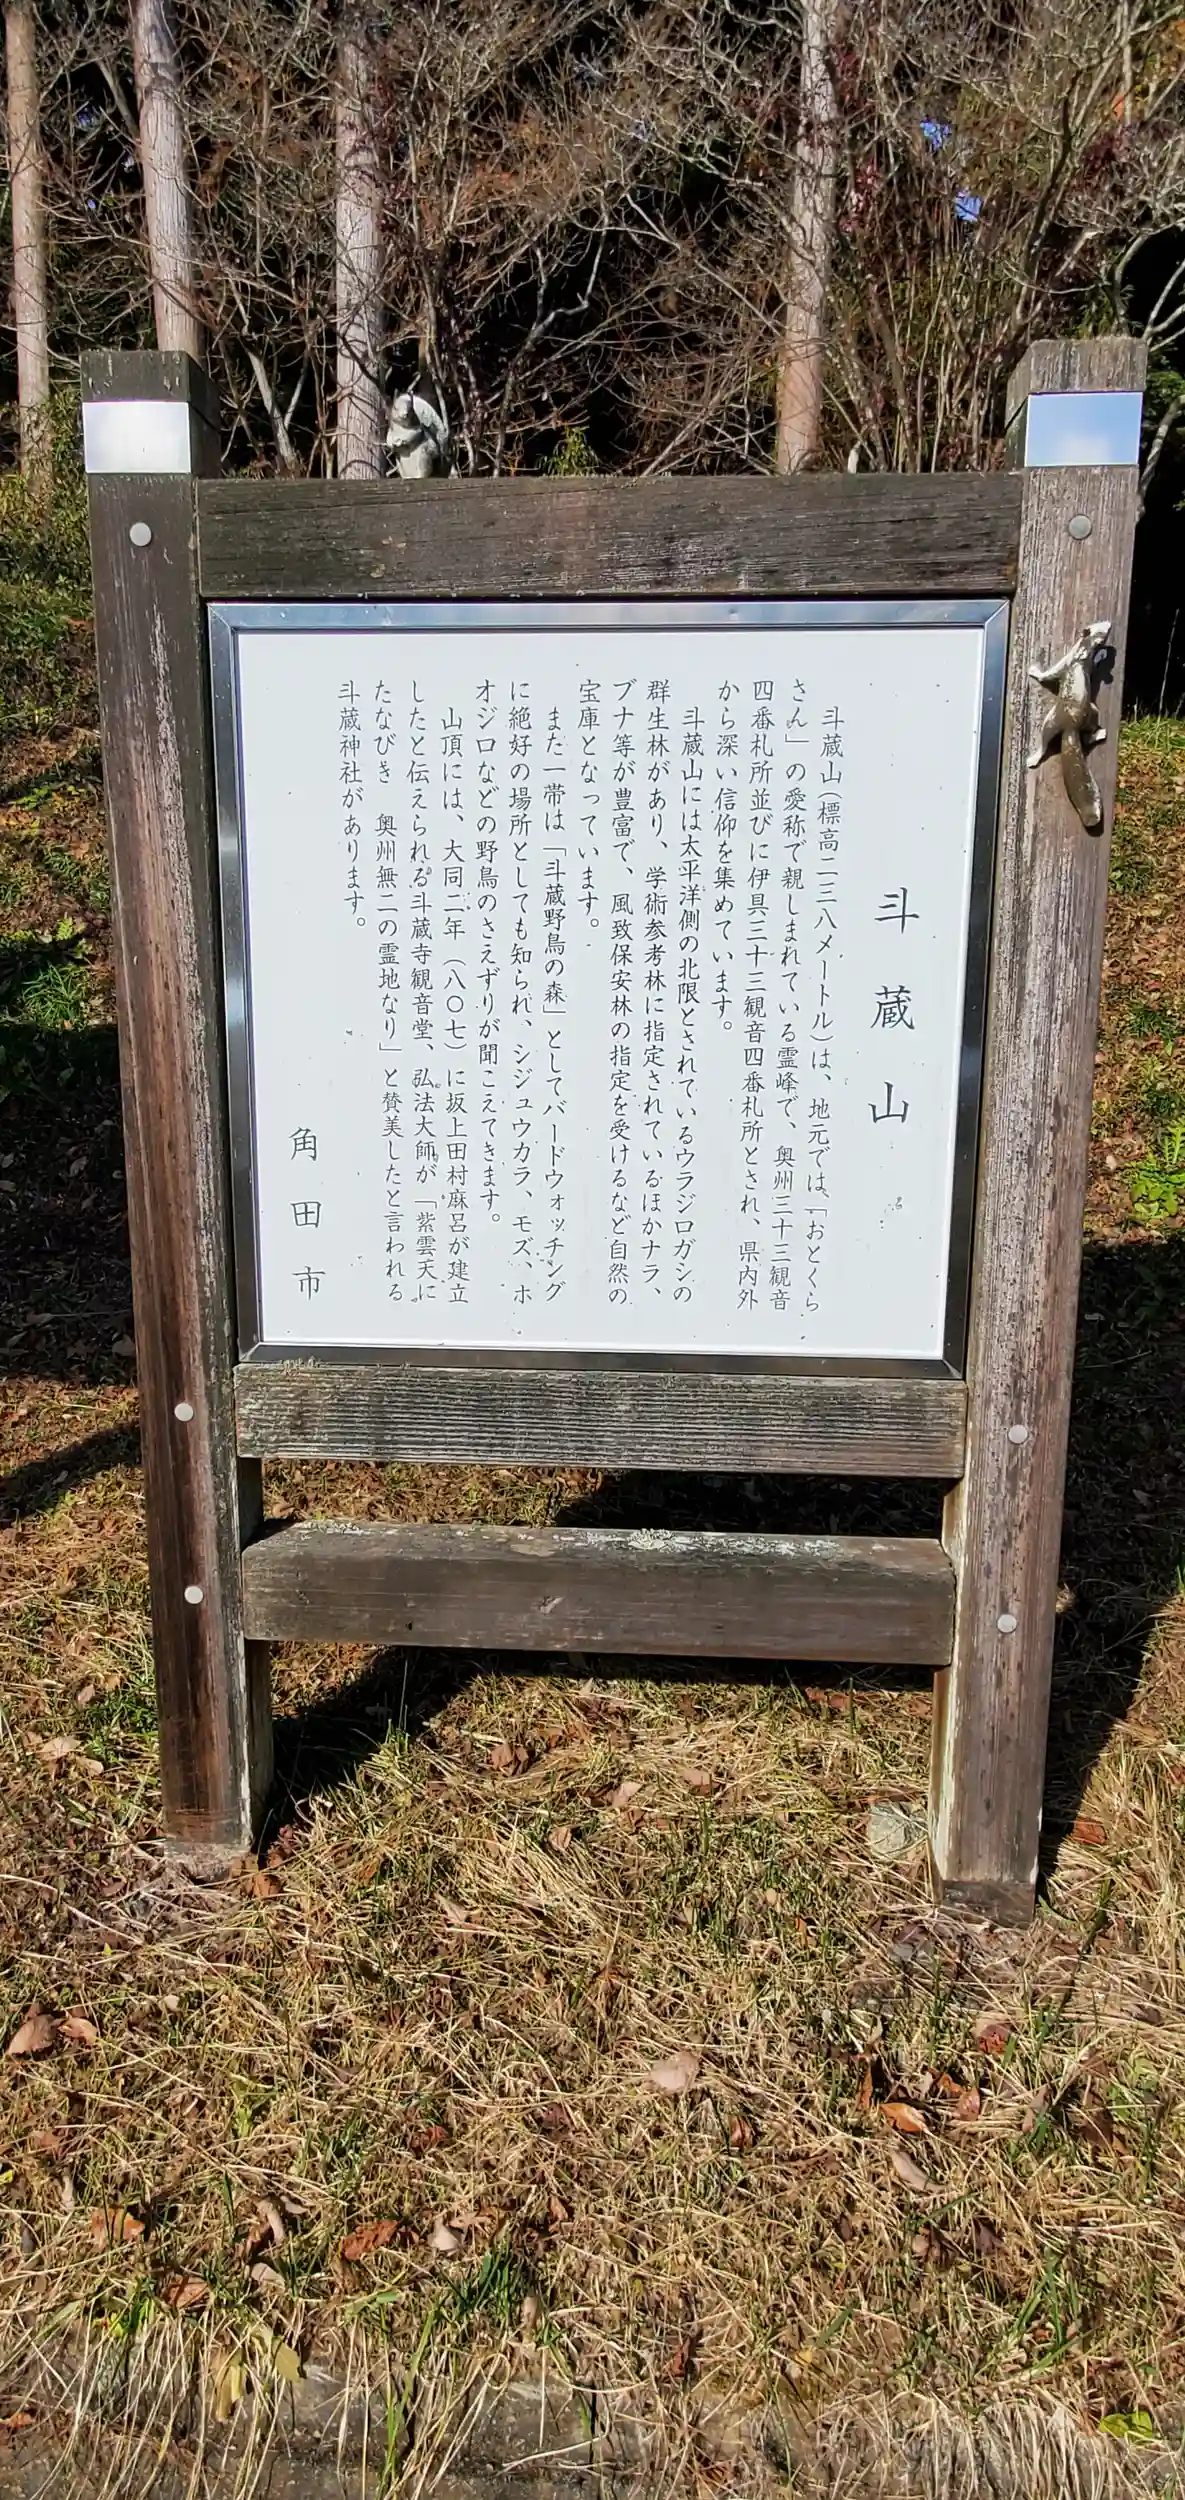 斗蔵山
斗蔵山(標高二三八メートル)は、地元では、「おとくら
さん」の愛称で親しまれている霊峰で、奥州三十三観音
四番札所並びに伊具三十三観音四番札所とされ、県内外
から深い信仰を集めています。
斗蔵山には太平洋側の北限とされているウラジロガシの
群生林があり、学術参考林に指定されているほかナラ、
ブナ等が豊富で、風致保安林の指定を受けるなど自然の
宝庫となっています。
また一帯は「斗蔵野鳥の森」としてバードウォッチング
に絶好の場所としても知られ、シジュウカラ、モズ、ホ
オジロなどの野鳥のさえずりが聞こえてきます。
山頂には、大同二年(八〇七)に坂上田村麻呂が建立
したと伝えられる斗蔵寺観音堂、弘法大師が「紫雲天に
たなびき 奥州無二の霊地なり」と賛美したと言われる
斗蔵神社があります。
角田市